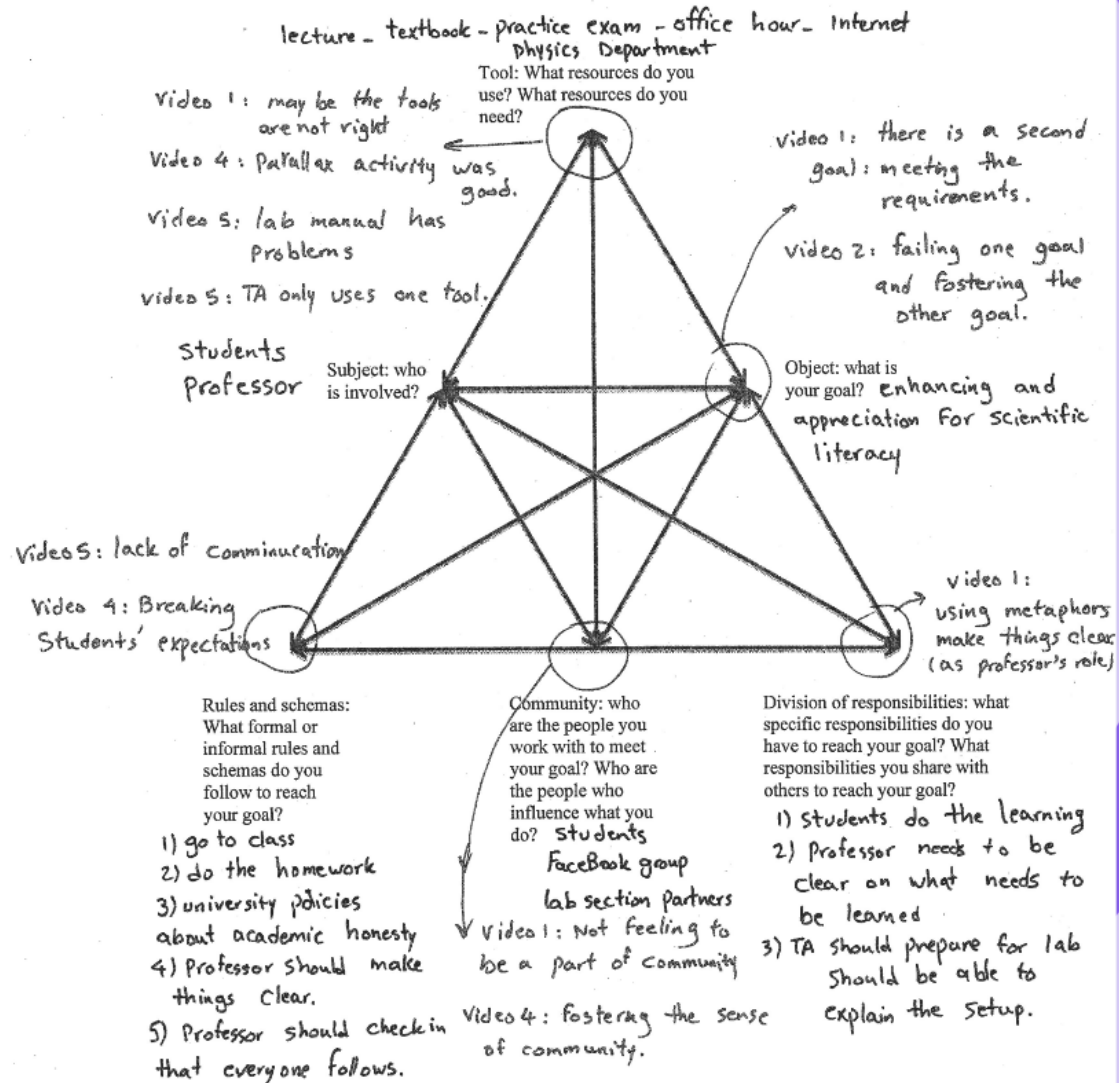 lecture - textbook - practice exam - office hour - Internet
Physics Department
Tool: What resources do you
use? What resources do you
need?
Video 1: may be the tools
are not right
Video 4: Parallax activity was
good.
Video 5: lab manual has
Problems
Video 5: TA only uses one tool.
Video 1: there is a second
goal: meeting the
requirements.
Video 2: failing one goal
and fostering the
other goal.
Students
Professor
Subject: who
is involved?
Object: what is
your goal? enhancing and
appreciation for scientific
literacy
Video 5: lack of comminucation
Video 4: Breaking
Students' expectations
Video 1:
using metaphors
make things clear
(as professor's role)
Rules and schemas:
What formal or
informal rules and
schemas do you
follow to reach
your goal?
1) go to class
2) do the homework
3) university policies
about academic honesty
4) Professor should make
things clear.
5) Professor should check in
that everyone follows.
Community: who
are the people you
work with to meet
your goal? Who are
the people who
influence what you
do? Students
FaceBook group
lab section partners
Video 1: Not feeling to
be a part of community
Video 4: fostering the sense
of community.
Division of responsibilities: what
specific responsibilities do you
have to reach your goal? What
responsibilities you share with
others to reach your goal?
1) Students do the learning
2) Professor needs to be
clear on what needs to
be learned
3) TA should prepare for lab
should be able to
explain the setup.